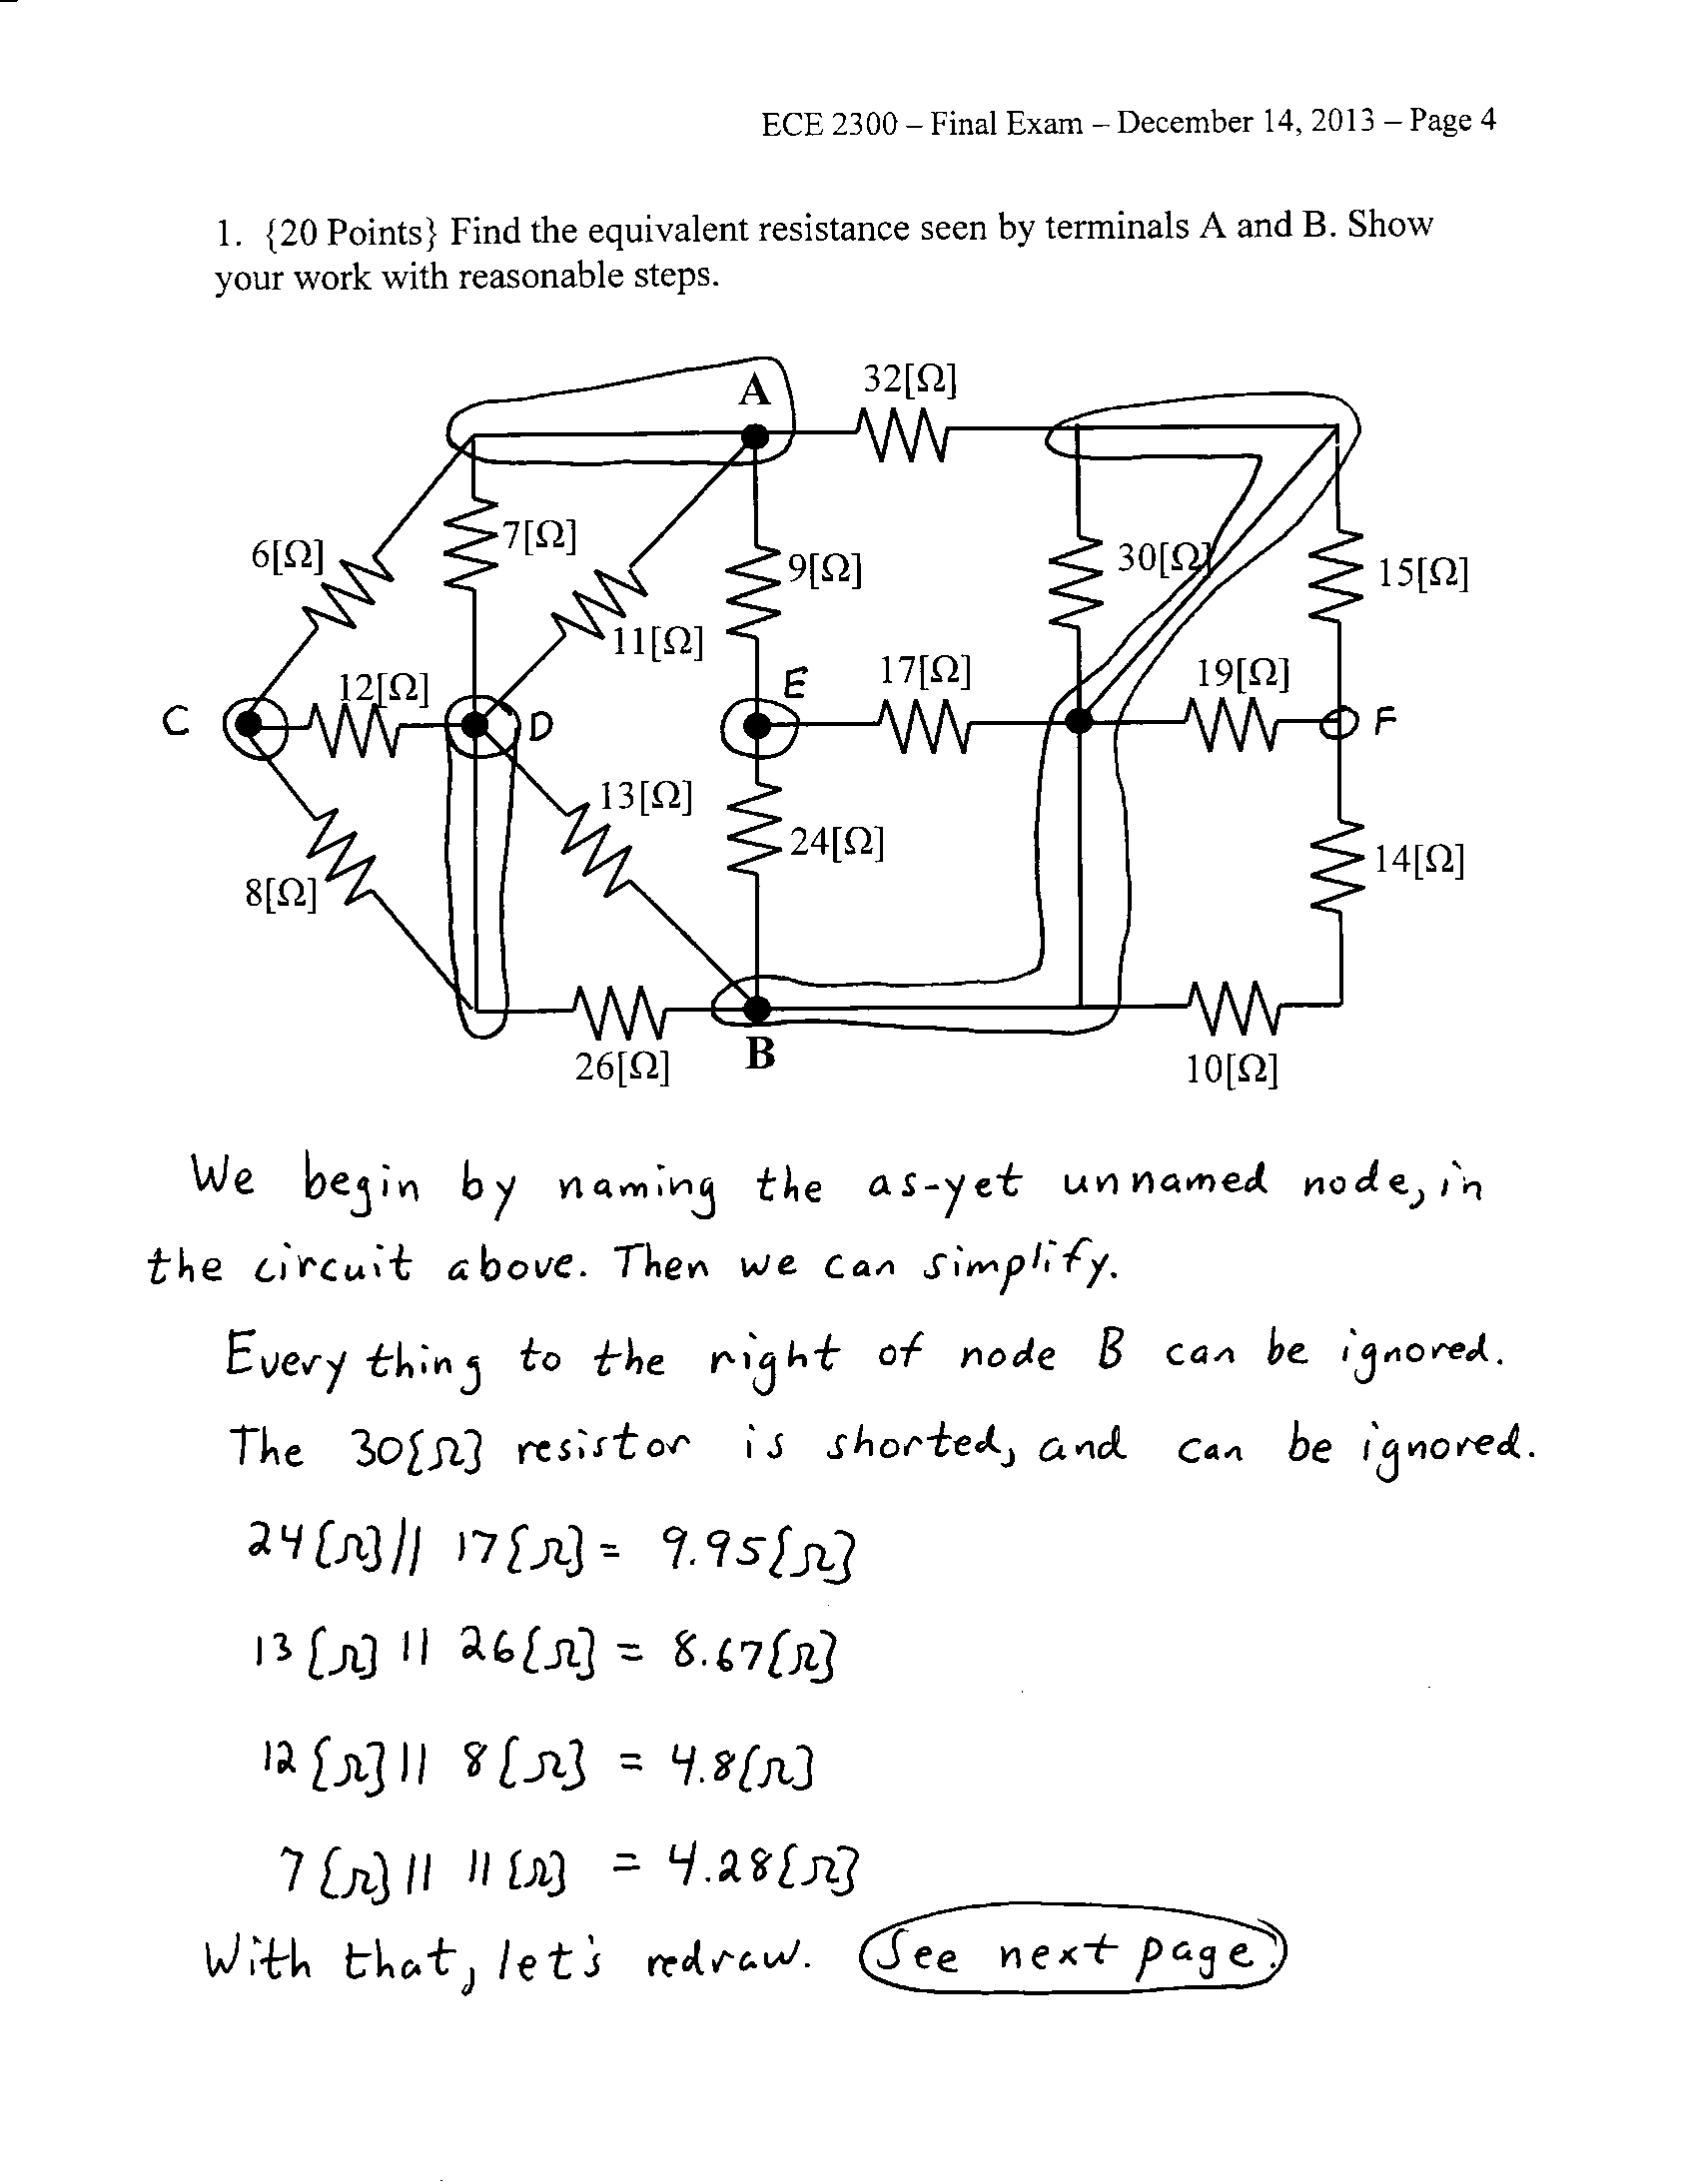 ECE 2300 – Final Exam – December 14, 2013 – Page 4
1. {20 Points} Find the equivalent resistance seen by terminals A and B. Show
your work with reasonable steps.
A
32[Ω]
6[Ω]
7[Ω]
11[Ω]
9[Ω]
30[Ω]
15[Ω]
C
12[Ω]
D
E
17[Ω]
19[Ω]
F
8[Ω]
13[Ω]
24[Ω]
14[Ω]
26[Ω]
B
10[Ω]
We begin by naming the as-yet unnamed node, in
the circuit above. Then we can simplify.
Everything to the right of node B can be ignored.
The 30[Ω] resistor is shorted, and can be ignored.
24[Ω] || 17[Ω] = 9.95[Ω]
13[Ω] || 26[Ω] = 8.67[Ω]
12[Ω] || 8[Ω] = 4.8[Ω]
7[Ω] || 11[Ω] = 4.28[Ω]
With that, let's redraw. See next page.